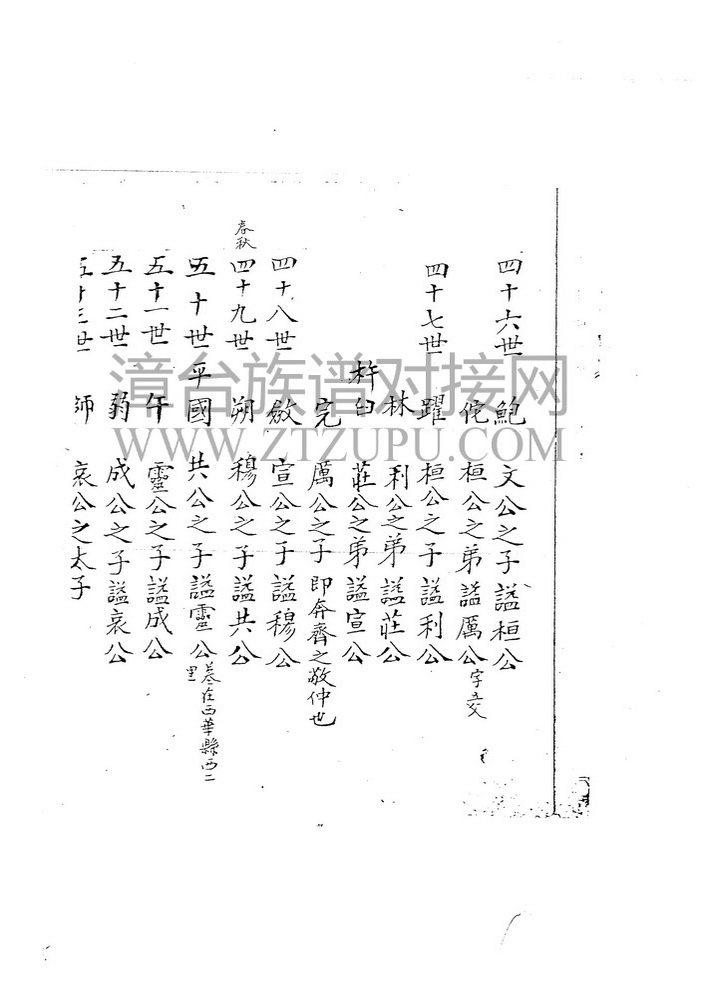 四十六世 鮑 文公之子諡桓公
佗 桓公之弟諡厲公 字五父
四十七世 躍 桓公之子諡利公
林 利公之弟諡莊公
杵臼 莊公之弟諡宣公
完 厲公之子 即奔齊之敬仲也
四十八世 款 宣公之子諡穆公
春秋
四十九世 朔 穆公之子諡共公
五十世 平國 共公之子諡靈公 墓在西華縣西二里
五十一世 午 靈公之子諡成公
五十二世 弱 成公之子諡哀公
五十三世 師 哀公之太子
漳台族谱对接网
WWW.ZTZUPU.COM